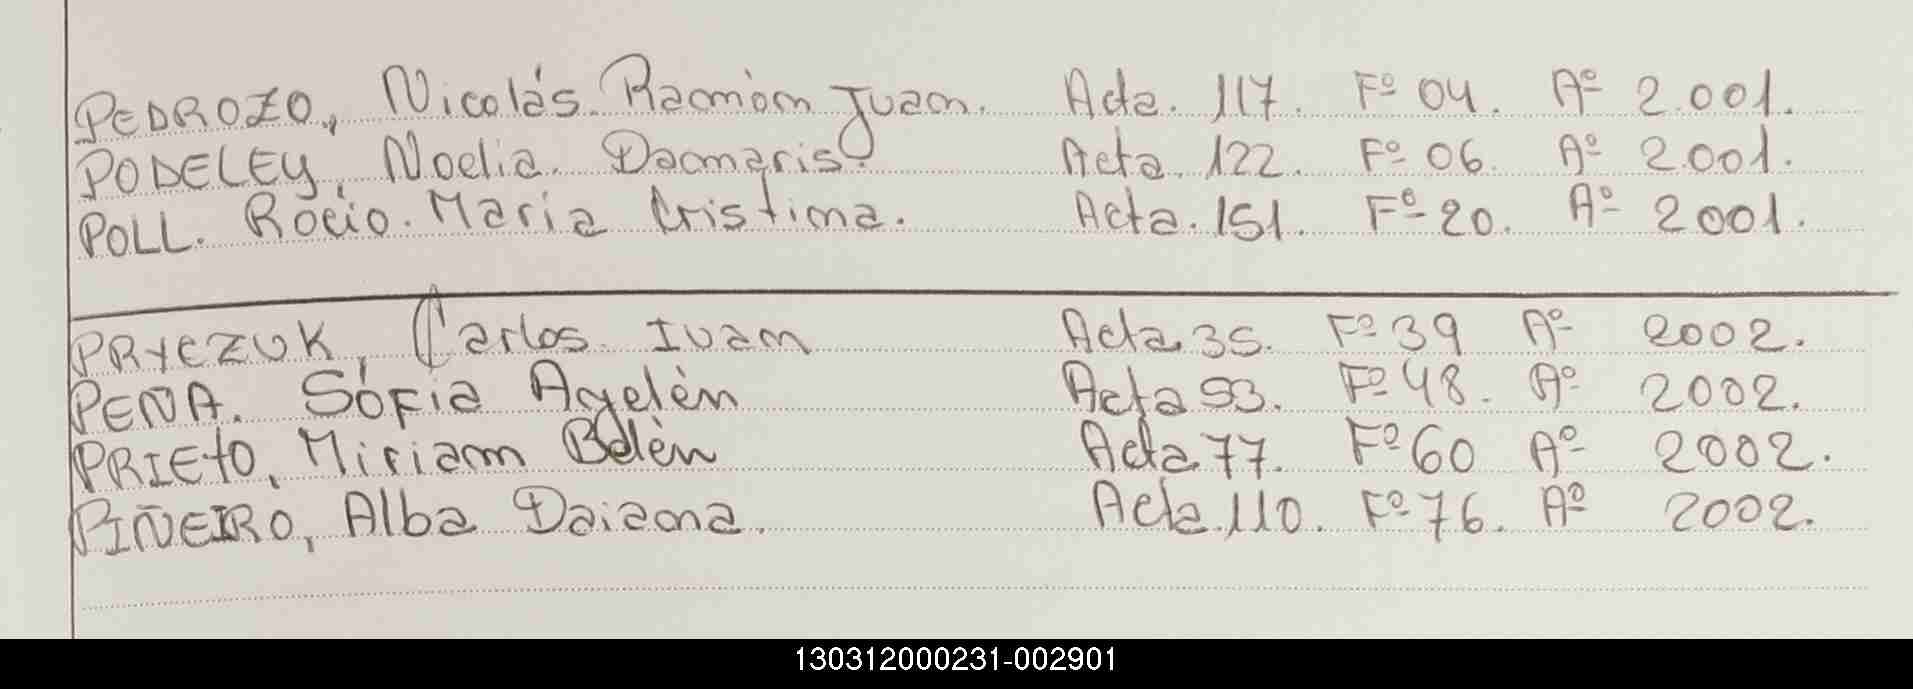 PEDROZO, Nicolás. Ramòn Juan. Acta. 117. Fº 04. Aº 2.001.
PODELEY, Noelia. Damaris. Acta. 122. Fº 06. Aº 2.001.
POLL. Rocio. María Cristina. Acta. 151. Fº 20. Aº 2001.
PRYCZUK, Carlos. Ivan Acta 35. Fº 39 Aº 2002.
PEÑA. Sófia Ayelèn Acta 53. Fº 48. Aº 2002.
PRIETO, Miriam Belèn Acta 77. Fº 60 Aº 2002.
PIÑEIRO, Alba Daiana. Acta. 110. Fº 76. Aº 2002.
130312000231-002901